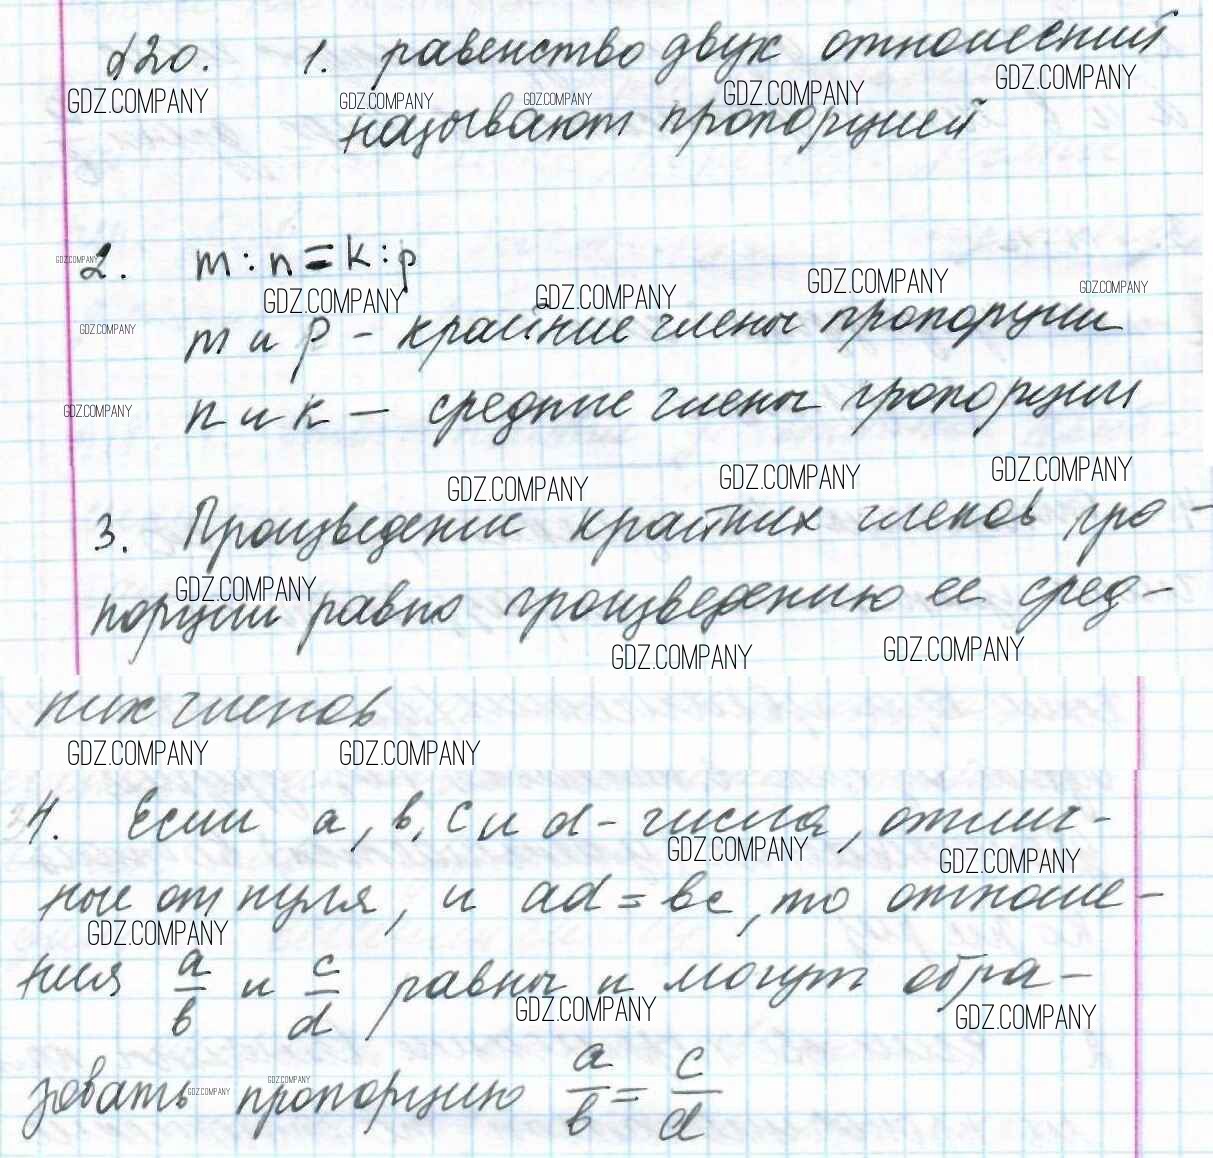 §20. 1. равенство двух отношений
GDZ.COMPANY GDZ.COMPANY GDZ.COMPANY GDZ.COMPANY GDZ.COMPANY
называют пропорцией
2. m : n = k : p
GDZ.COMPANY
GDZ.COMPANY GDZ.COMPANY GDZ.COMPANY GDZ.COMPANY
m и p - крайние члены пропорции
GDZ.COMPANY
n и k — средние члены пропорции
GDZ.COMPANY
GDZ.COMPANY GDZ.COMPANY GDZ.COMPANY
3. Произведение крайних членов про-
GDZ.COMPANY
порции равно произведению ее сред-
GDZ.COMPANY GDZ.COMPANY
них членов
GDZ.COMPANY GDZ.COMPANY
4. Если a, b, c и d - числа, отлич-
GDZ.COMPANY GDZ.COMPANY
ные от нуля, и ad = bc, то отноше-
GDZ.COMPANY
ния a/b и c/d равны и могут обра-
GDZ.COMPANY GDZ.COMPANY
зовать пропорцию a/b = c/d
GDZ.COMPANY GDZ.COMPANY